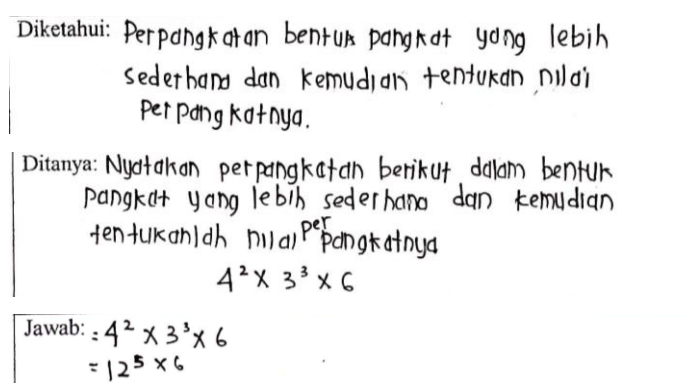 Diketahui: Perpangkatan bentuk pangkat yang lebih
sederhana dan kemudian tentukan nilai
perpangkatnya.
Ditanya: Nyatakan perpangkatan berikut dalam bentuk
pangkat yang lebih sederhana dan kemudian
tentukanlah nilai perpangkatnya
4² × 3³ × 6
Jawab: = 4² × 3³ × 6
= 12⁵ × 6